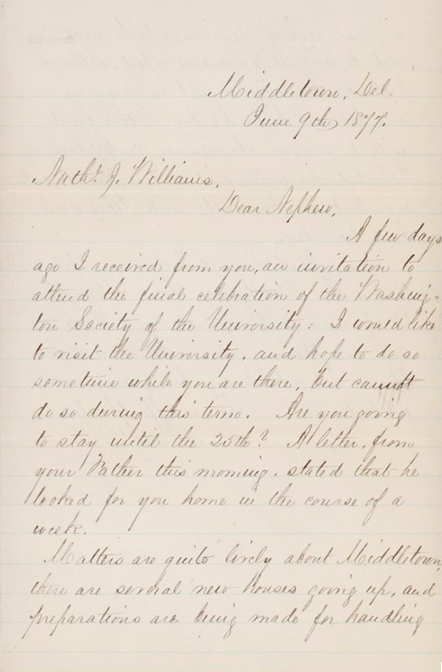 Middletown, Del.
June 9th, 1877.
Nathl. J. Williams,
Dear Nephew,
A few days
ago I received from you, an invitation to
attend the final celebration of the Washing-
ton Society of the University: I would like
to visit the University, and hope to do so
sometime while you are there, but cannot
do so during this term. Are you going
to stay until the 25th? A letter, from
your Father this morning, stated that he
looked for you home in the course of a
week.
Matters are quite lively about Middletown,
there are several new houses going up, and
preparations are being made for handling